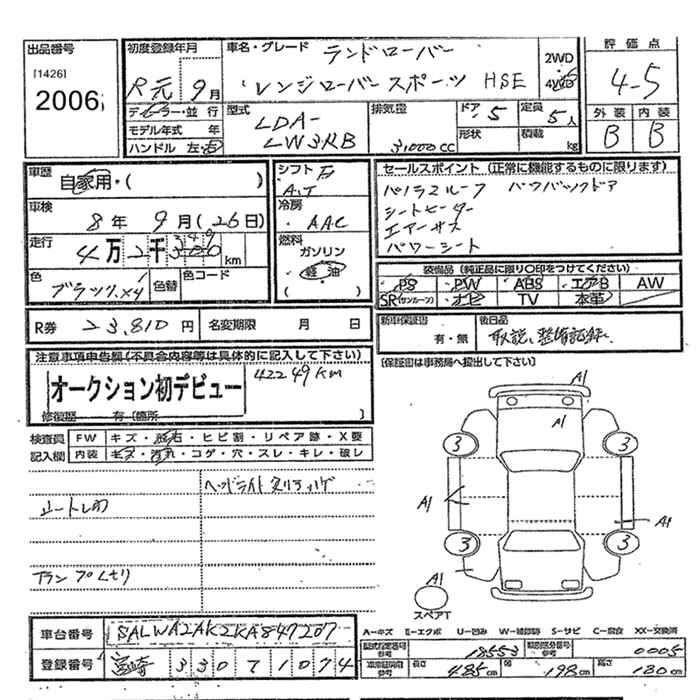 出品番号
[1426]
2006
初度登録年月
R元年 9月
ディーラー・並行
モデル年式 年
ハンドル 左・右
車名・グレード ランドローバー
レンジローバースポーツ HSE
2WD
4WD
型式
LDA-
LW3KB
排気量
3,000 cc
ドア 5
形状
定員 5人
積載 kg
評価点
4.5
外装 内装
B B
車歴
自家用・( )
車検
8年 9月(26日)
走行
4万2千 km
色
ブラック
色替
色コード
シフト
AT
冷房
AAC
燃料
ガソリン
軽油
( )
セールスポイント(正常に機能するものに限ります)
パノラマルーフ パワーバックドア
シートヒーター
エアーサス
パワーシート
装備品(純正品に限り○印をつけてください)
PS PW ABS エアB AW
SR(サンルーフ) ナビ TV 本革
R券 23,810円 名変期限 月 日
新車保証書
有・無
後日品
取説、整備記録
注意事項申告欄(不具合内容等は具体的に記入して下さい)
オークション初デビュー
42249km
修復歴 有〔箇所
〔保証書は事務局へ提出して下さい〕
検査員
記入欄
FW キズ・飛石・ヒビ割・リペア跡・X要
内装 キズ・汚れ・コゲ・穴・スレ・キレ・破レ
A1
A1
3 3
A1
A1
3 3
A1
スペアT
A-キズ E-エクボ U-凹み W-補修跡 S-サビ C-腐食 XX-交換済
車台番号 SALWA2AK2KA847207
登録番号 宮崎 330 1074
型式指定番号
参考
18553
類別区分番号
参考
0005
車庫証明用
参考
長さ 485cm
幅 198cm
高さ 180cm